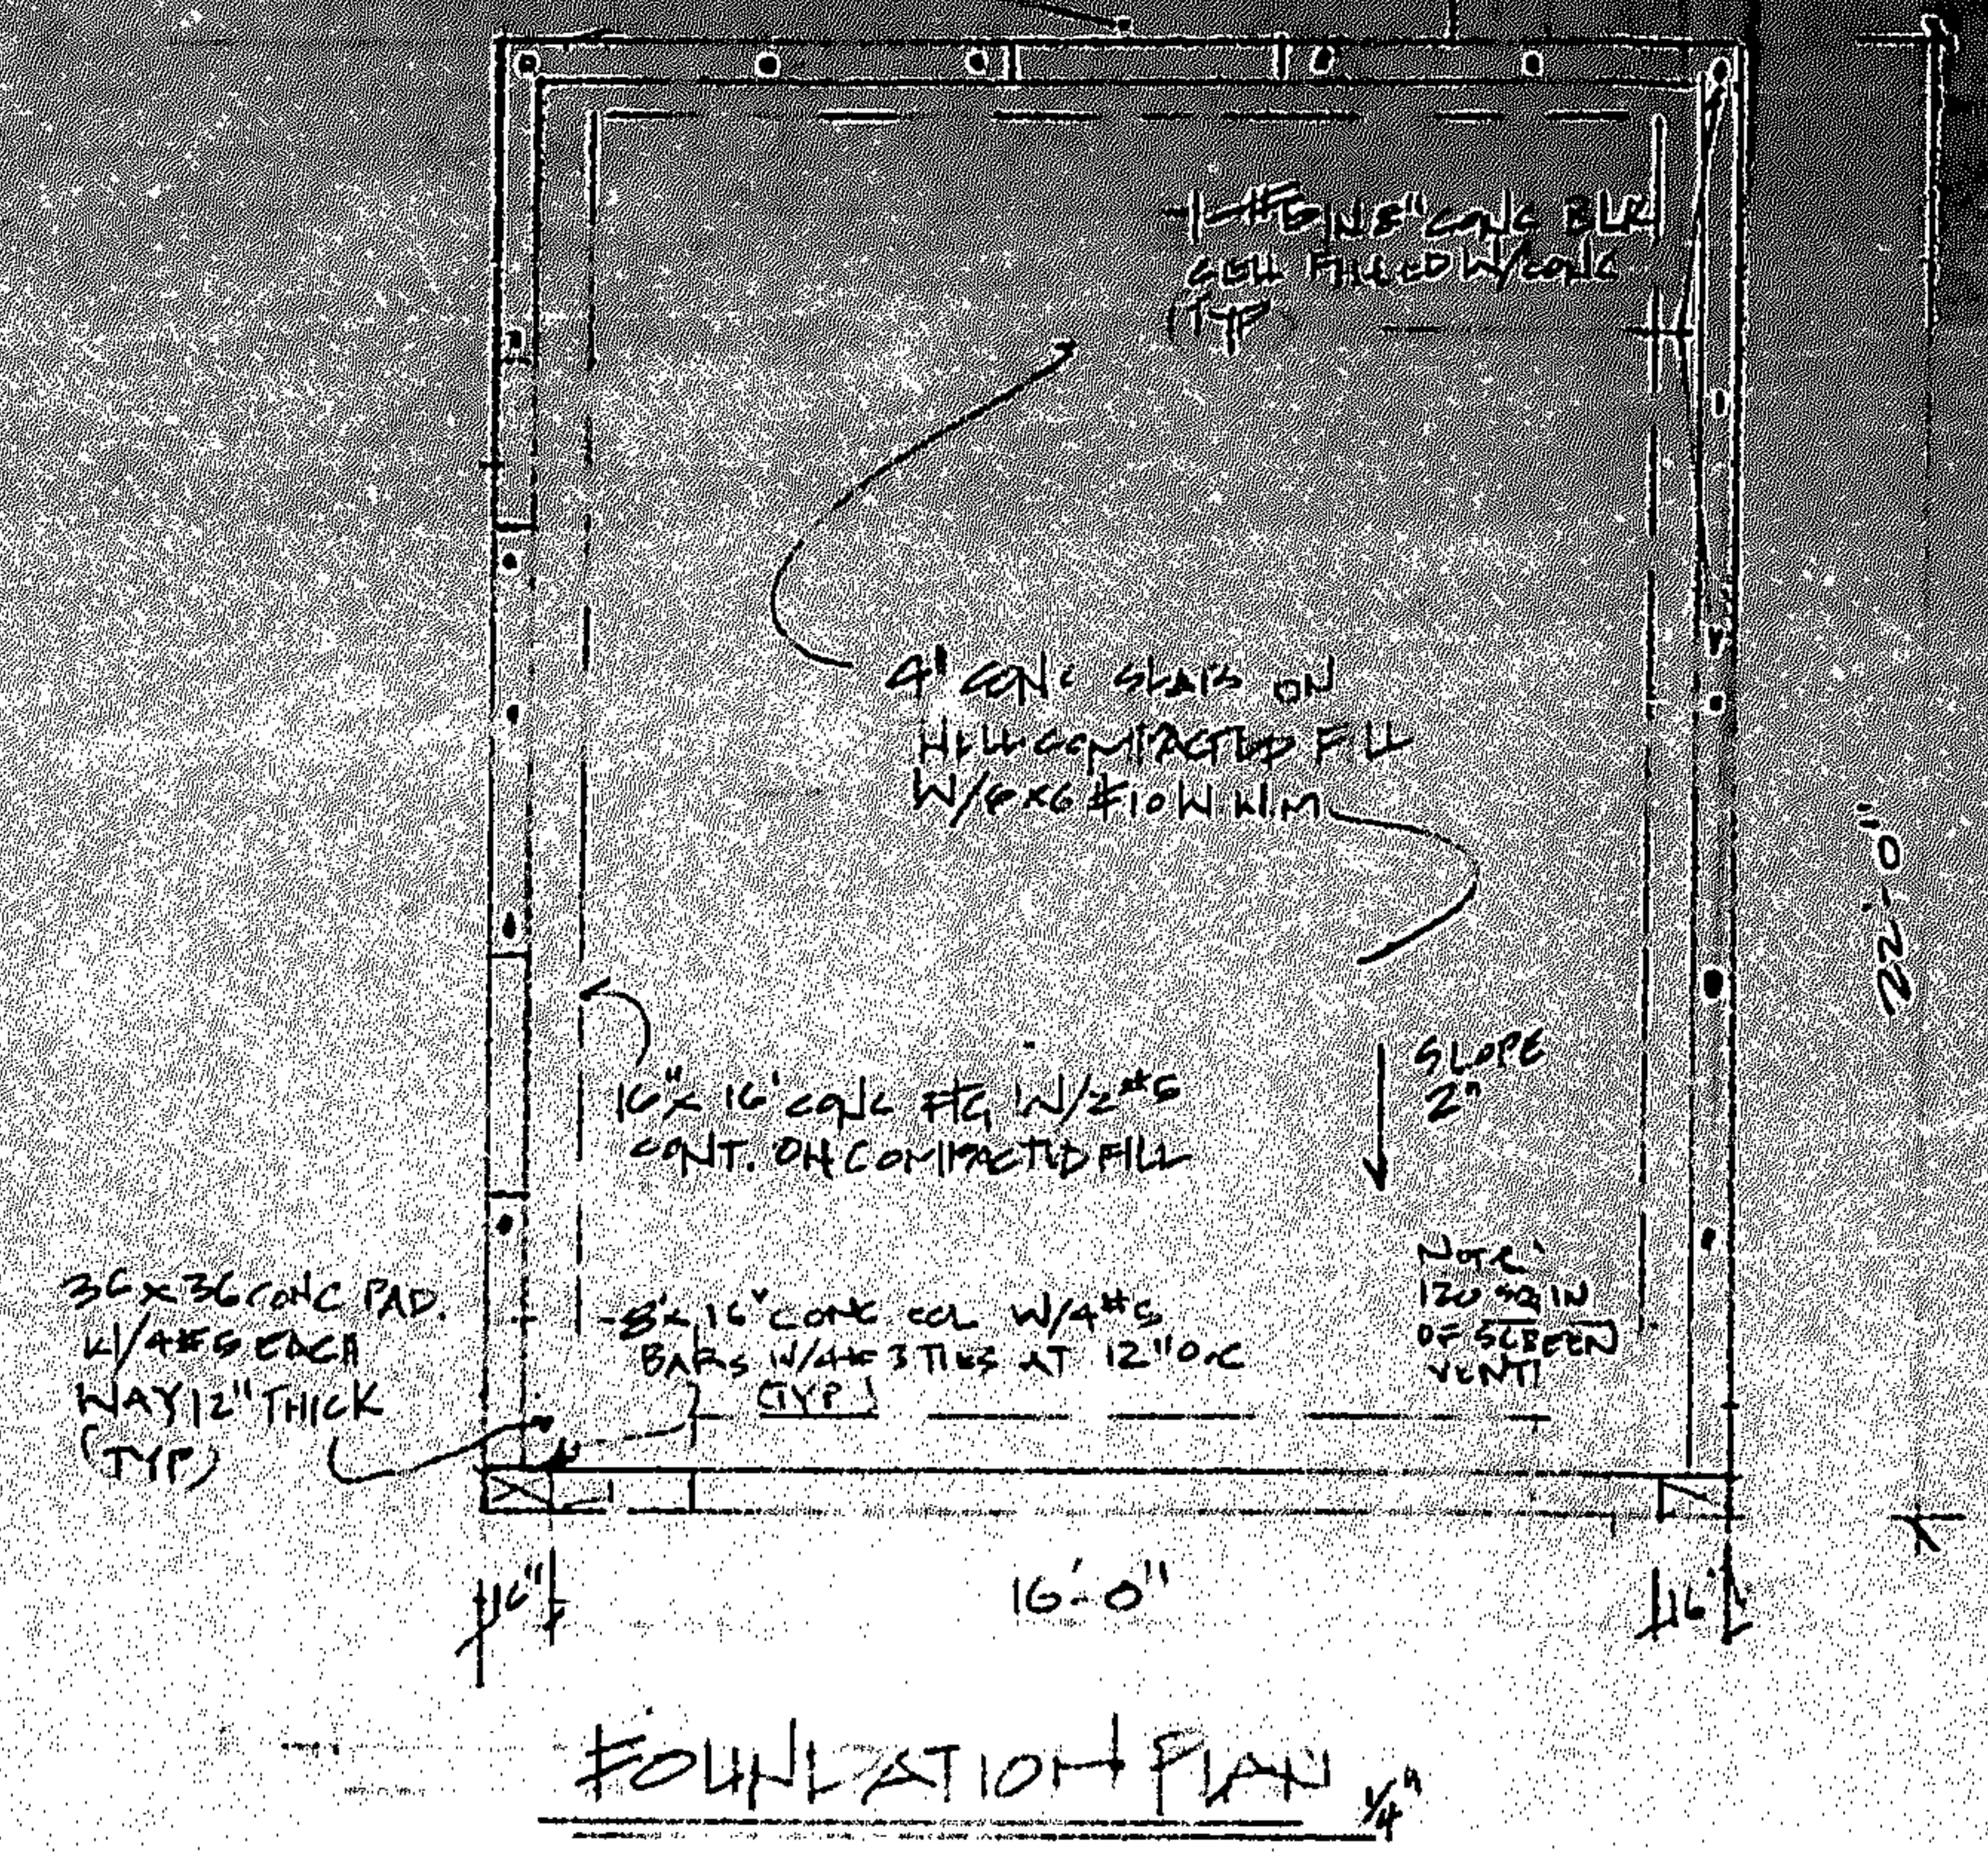 1-#5 IN 8" CONC BLK
CELL FILLED W/CONC
(TYP
4" CONC SLAB ON
WELL COMPACTED FILL
W/6x6 #10 W.W.M
22'-0"
16" x 16" CONC FTG W/2 #5
CONT. ON COMPACTED FILL
SLOPE
2"
NOTE:
120 SQ IN
OF SCREEN
VENT
36 x 36 CONC PAD.
W/4 #5 EACH
WAY 12" THICK
(TYP)
8" x 16" CONC COL W/4 #5
BARS W/ #3 TIES AT 12" O.C
(TYP)
16"
16'-0"
16"
FOUNDATION PLAN 1/4"